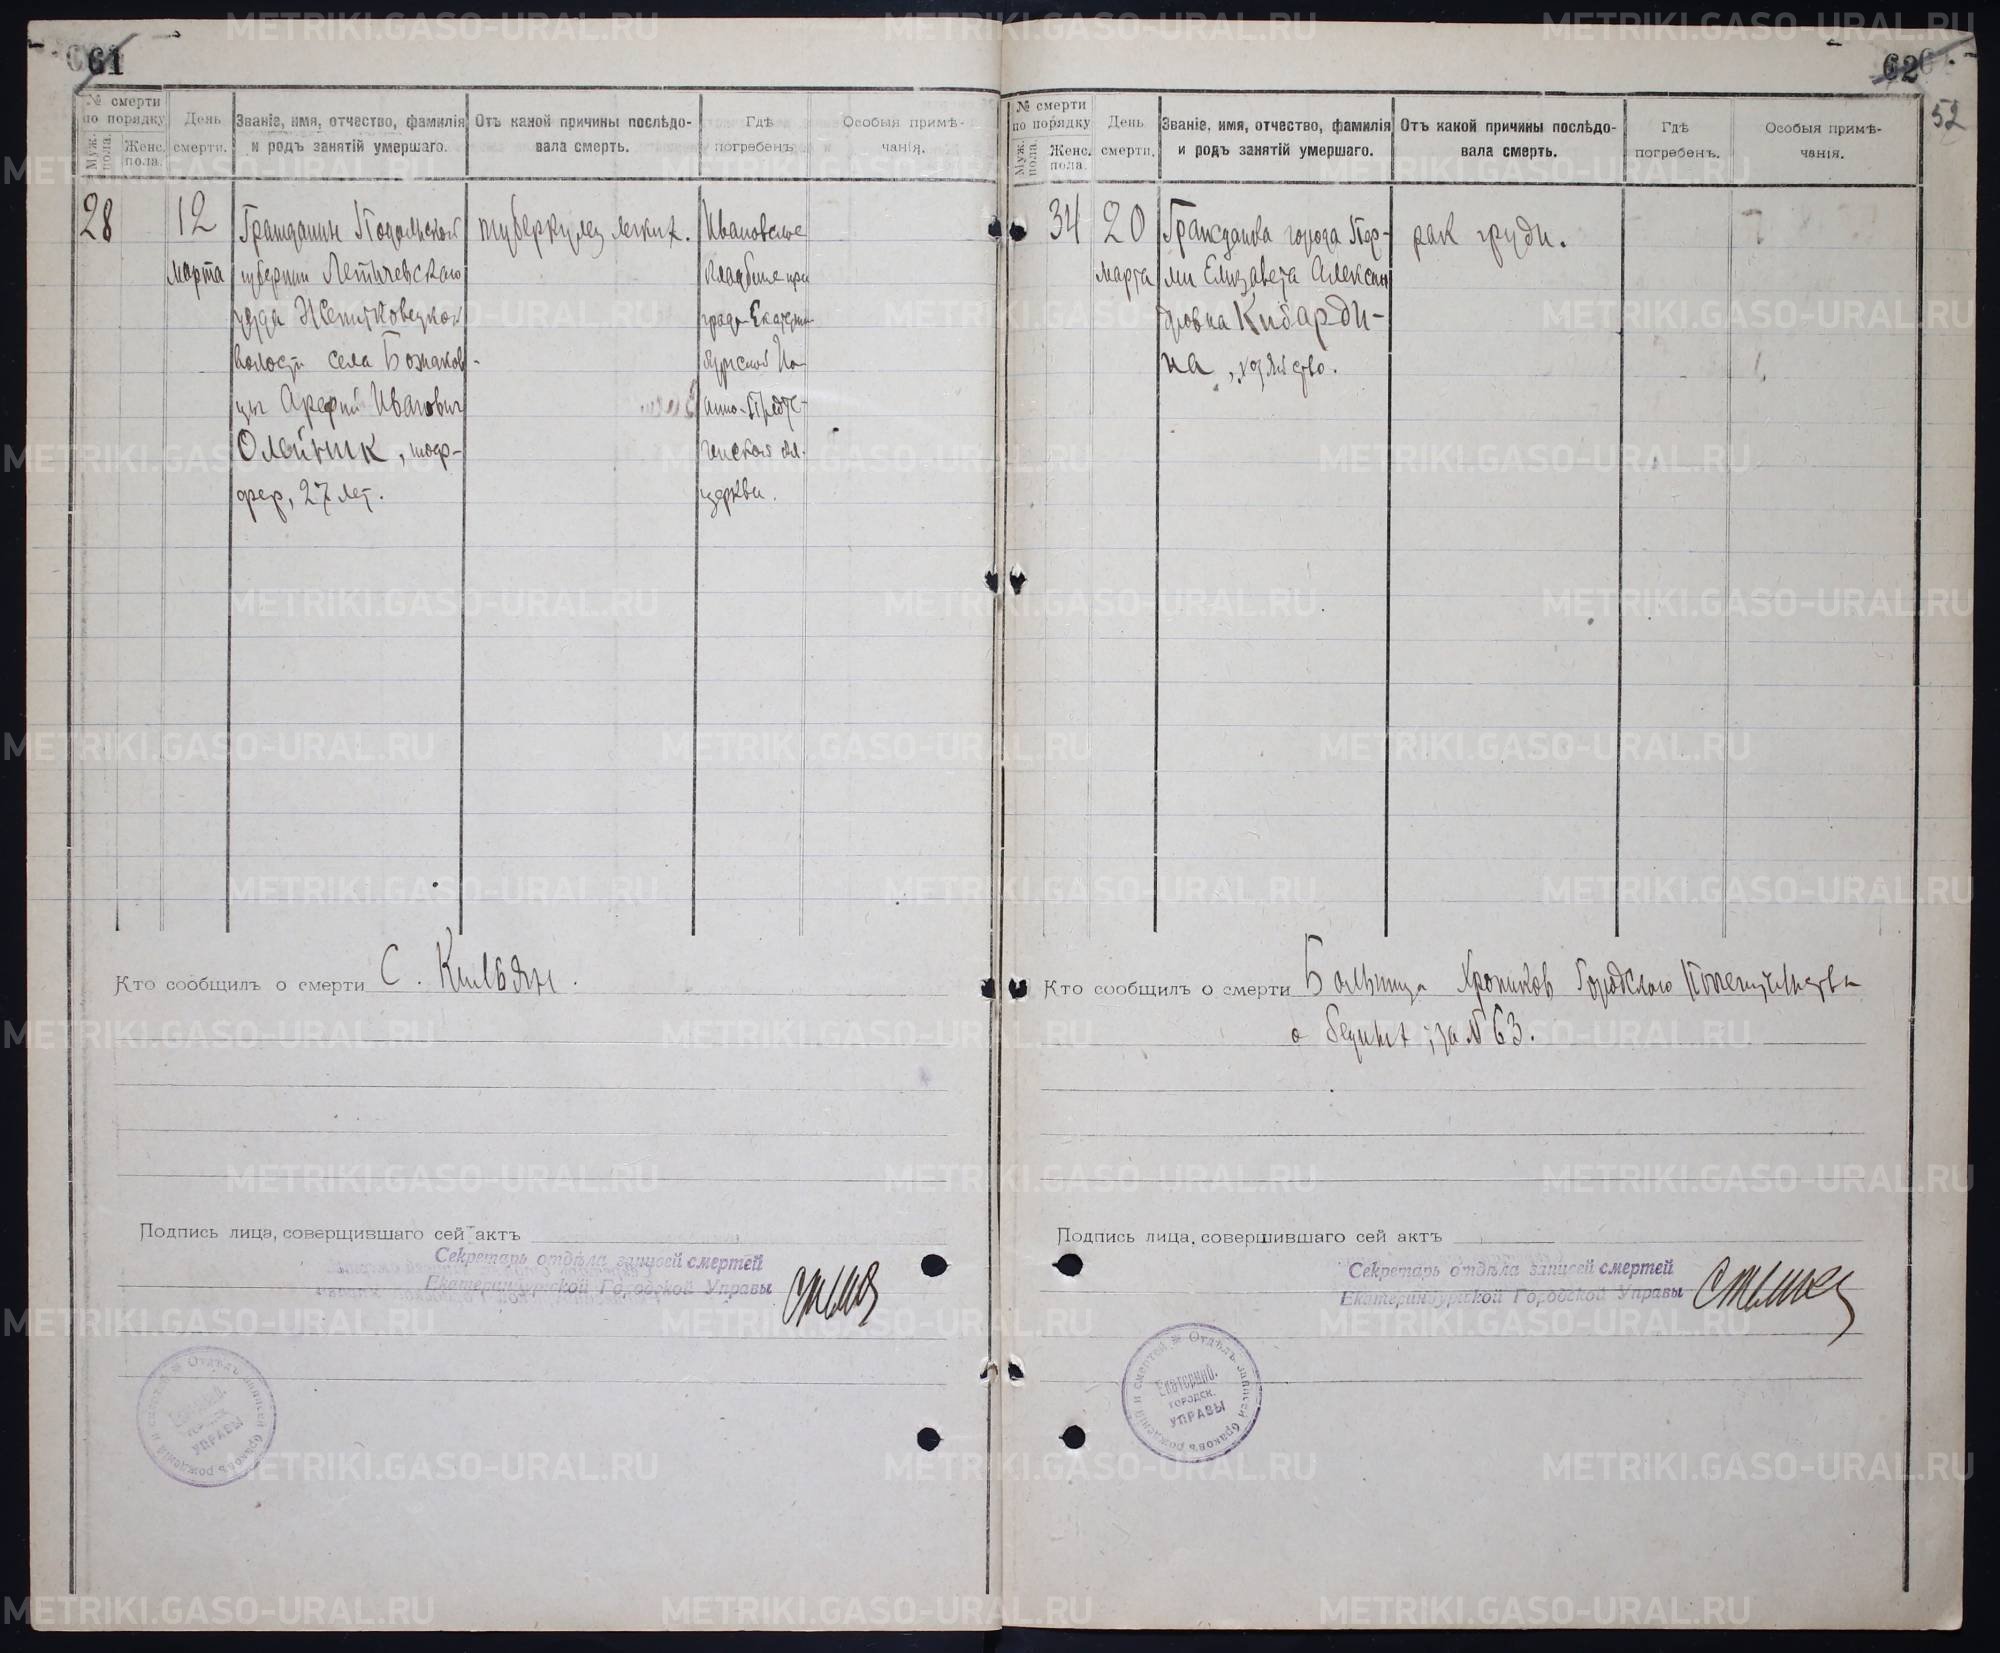 61
№ смерти по порядку
Муж. пола.
Женс. пола.
День смерти.
Званіе, имя, отчество, фамилія и родъ занятій умершаго.
Отъ какой причины послѣдовала смерть.
Гдѣ погребенъ.
Особыя примѣчанія.
28
12
марта
Гражданин Подольской
губернии Летичевского
уезда
волости села
Иванович
Олейник, шоф-
фер, 27 лет.
туберкулез легких.
Ивановское
кладбище при
граде Екатерин-
бургской Ио-
анно-Предте-
ченской кл.
церкви.
Кто сообщилъ о смерти С. Кильян.
Подпись лица, совершившаго сей актъ
Секретарь отдѣла записей смертей
Екатеринбургской Городской Управы
Отдѣлъ записей браковъ рожденій и смертей
УПРАВЫ
62
52
№ смерти по порядку
Муж. пола.
Женс. пола.
День смерти.
Званіе, имя, отчество, фамилія и родъ занятій умершаго.
Отъ какой причины послѣдовала смерть.
Гдѣ погребенъ.
Особыя примѣчанія.
34
20
марта
Гражданка города Пер-
ми Елизавета Алексан
дровна Кибарди-
на, хозяйство.
рак груди.
Кто сообщилъ о смерти Больница Хроников Городского Попечительства
о бедных, за № 63.
Подпись лица, совершившаго сей актъ
Секретарь отдѣла записей смертей
Екатеринбургской Городской Управы
Отдѣлъ записей браковъ рожденій и смертей
Екатеринб.
городск.
УПРАВЫ
METRIKI.GASO-URAL.RU